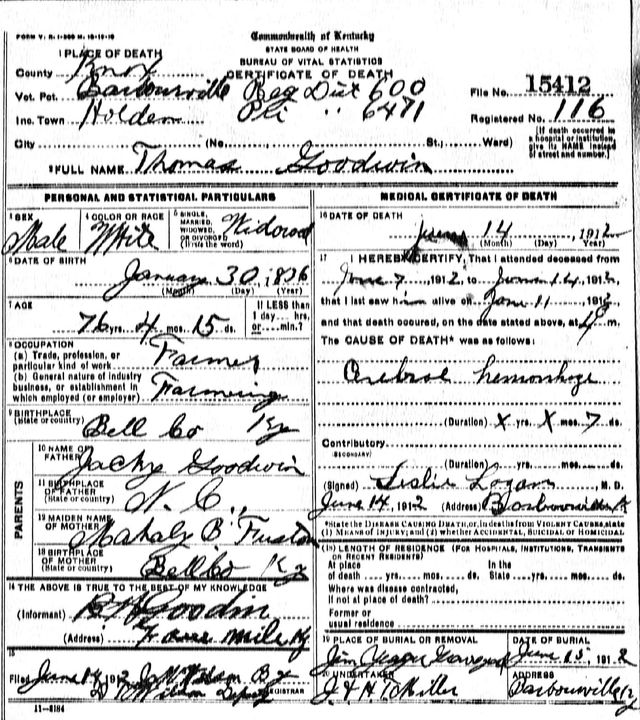 FORM V. S. 1-200 M. 10-10-10
Commonwealth of Kentucky
STATE BOARD OF HEALTH
BUREAU OF VITAL STATISTICS
CERTIFICATE OF DEATH
1 PLACE OF DEATH
County Knox
Vot. Pct. Barbourville Reg Dist 600
Inc. Town Holden Pri " 6471
City (No. St.; Ward)
File No. 15412
Registered No. 116
(If death occurred in a hospital or institution, give its NAME instead of street and number.)
2 FULL NAME Thomas Goodwin
PERSONAL AND STATISTICAL PARTICULARS
3 SEX Male
4 COLOR OR RACE White
5 SINGLE, MARRIED, WIDOWED, OR DIVORCED (Write the word) Widowed
6 DATE OF BIRTH
January 30, 1836
(Month) (Day) (Year)
7 AGE
76 yrs. 4 mos. 15 ds.
If LESS than 1 day___ hrs. or___min.?
8 OCCUPATION
(a) Trade, profession, or particular kind of work Farmer
(b) General nature of industry business, or establishment in which employed (or employer) Farming
9 BIRTHPLACE
(State or country) Bell Co Ky
PARENTS
10 NAME OF FATHER Goodwin
11 BIRTHPLACE OF FATHER (State or country) N. C.,
12 MAIDEN NAME OF MOTHER B
13 BIRTHPLACE OF MOTHER (State or country) Bell Co Ky
14 THE ABOVE IS TRUE TO THE BEST OF MY KNOWLEDGE
(Informant)
(Address) Mile Ky
15
Filed June 14, 1912
Wilson Deputy REGISTRAR
11-3184
MEDICAL CERTIFICATE OF DEATH
16 DATE OF DEATH
June 14, 1912
(Month) (Day) (Year)
17 I HEREBY CERTIFY, That I attended deceased from
June 7, 1912, to June 14, 1912,
that I last saw him alive on June 11, 1912
and that death occured, on the date stated above, at 4 m.
The CAUSE OF DEATH* was as follows:
Cerebral hemorrhage
(Duration) X yrs. X mos. 7 ds.
Contributory
(SECONDARY)
(Duration) yrs. mos. ds.
(Signed) Leslie Logan, M. D.
June 14, 1912 (Address) Barbourville
*State the DISEASE CAUSING DEATH, or, in deaths from VIOLENT CAUSES, state (1) MEANS OF INJURY; and (2) whether ACCIDENTAL, SUICIDAL OR HOMICIDAL
18 LENGTH OF RESIDENCE (FOR HOSPITALS, INSTITUTIONS, TRANSIENTS OR RECENT RESIDENTS)
At place of death yrs. mos. ds. In the State yrs. mos. ds.
Where was disease contracted, If not at place of death?
Former or usual residence
19 PLACE OF BURIAL OR REMOVAL
Jim Graveyard
DATE OF BURIAL
June 15, 1912
20 UNDERTAKER
Miller
ADDRESS
Barbourville Ky